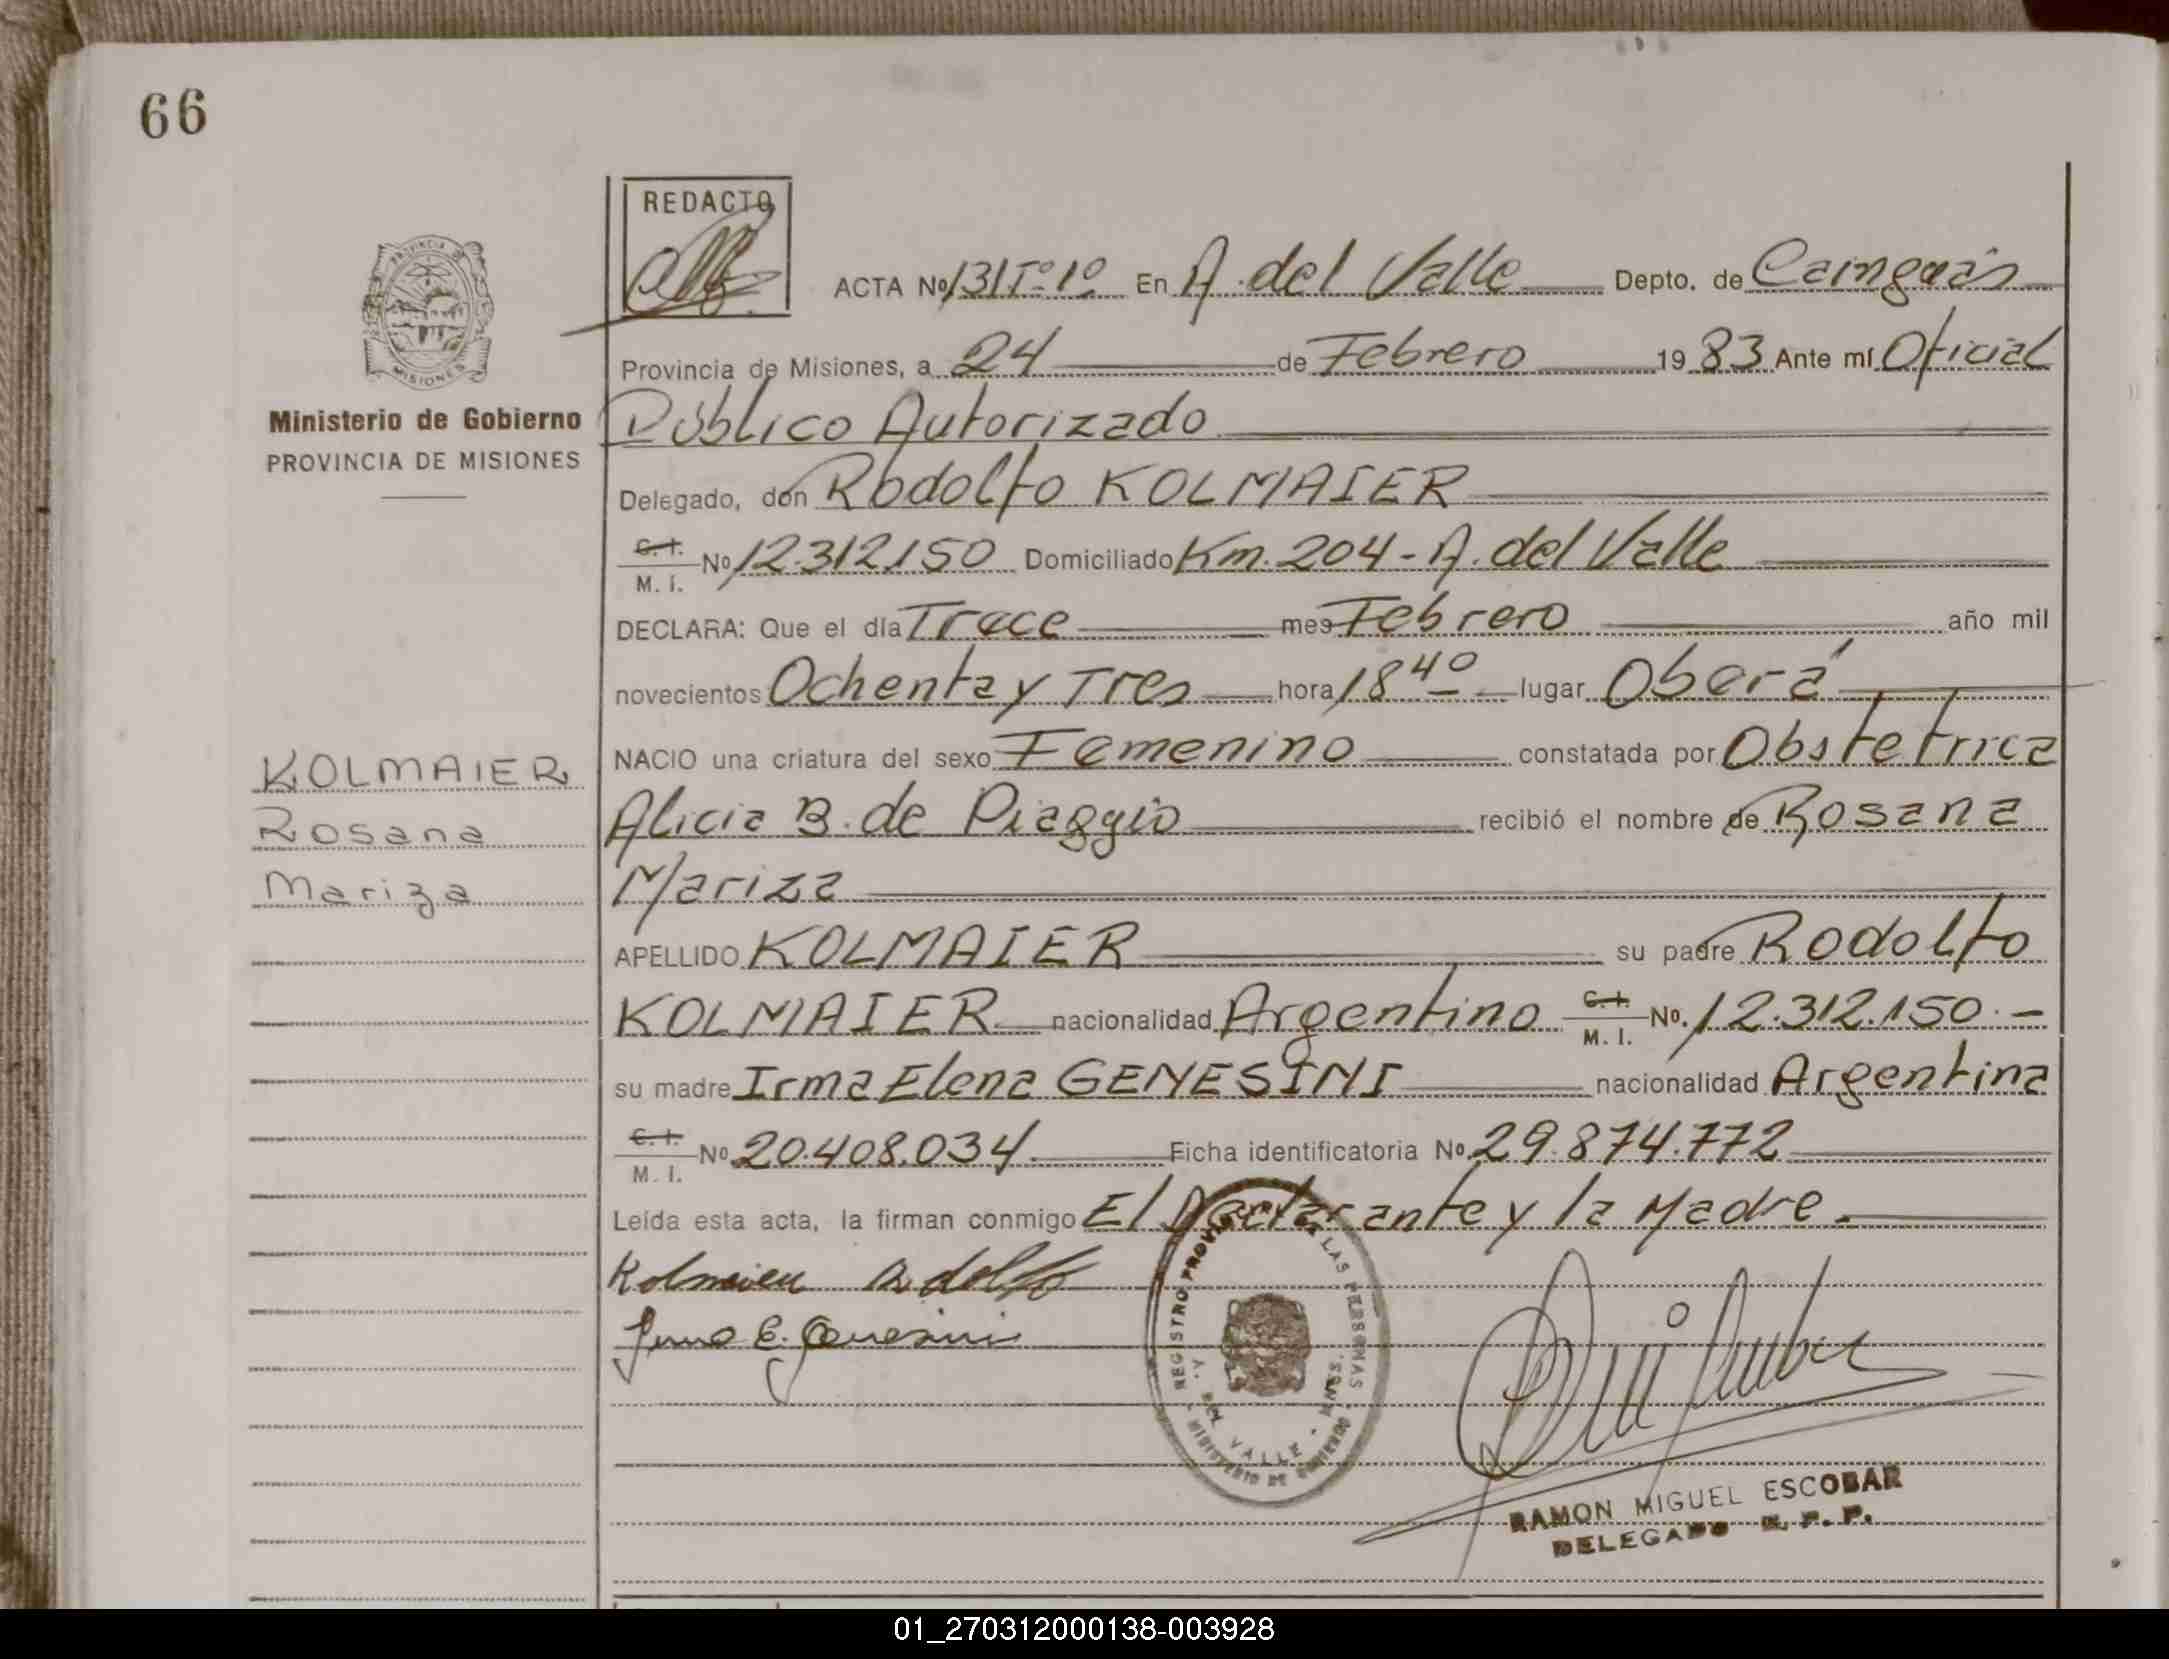 66
REDACTO
PROVINCIA DE
MISIONES
Ministerio de Gobierno
PROVINCIA DE MISIONES
ACTA Nº 131 Tº 1º En A. del Valle Depto. de Cainguás
Provincia de Misiones, a 24 de Febrero 1983 Ante mí Oficial
Público Autorizado
Delegado, don Rodolfo KOLMAIER
C.I. M. I. Nº 12.312.150 Domiciliado Km. 204 - A. del Valle
DECLARA: Que el día Trece mes Febrero año mil
novecientos Ochenta y Tres hora 18 40 lugar Oberá
NACIO una criatura del sexo Femenino constatada por Obstetrica
Alicia B. de Piaggio recibió el nombre de Rosana
Mariza
APELLIDO KOLMAIER su padre Rodolfo
KOLMAIER nacionalidad Argentino C.I. M. I. Nº. 12.312.150.-
su madre Irma Elena GENESINI nacionalidad Argentina
C.I. M. I. Nº 20.408.034 Ficha identificatoria Nº 29.874.772
Leída esta acta, la firman conmigo El Declarante y la Madre.
KOLMAIER
Rosana
Mariza
Kolmaier Rodolfo
Irma E. Genesini
REGISTRO PROVINCIAL LAS PERSONAS
A. DEL VALLE - MNES.
MINISTERIO DE GOBIERNO
RAMON MIGUEL ESCOBAR
DELEGADO R. P. P.
01_270312000138-003928